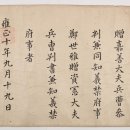 贈嘉善大夫兵曹參
判兼同知義禁府事
鄭世雅贈資憲大夫
兵曹判書兼知義禁
府事者
雍正十年九月十九日